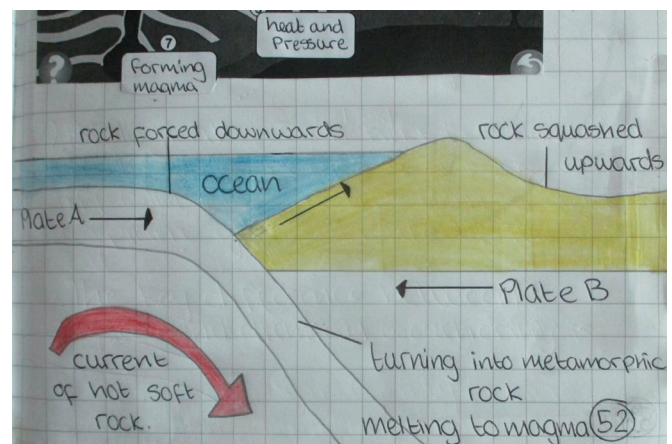 heat and
Pressure
7
forming
magma
?
rock forced downwards
rock squashed
upwards
ocean
Plate A
Plate B
current
of hot soft
rock.
turning into metamorphic
rock
melting to magma 52